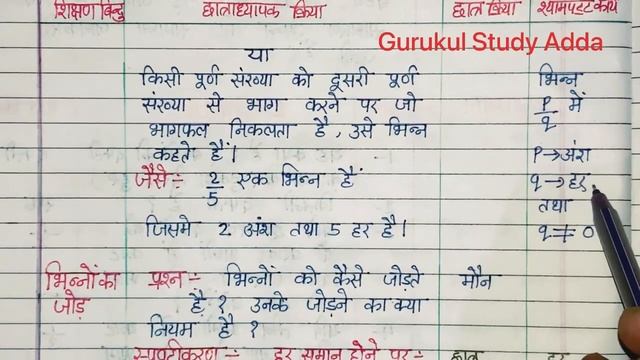 शिक्षण बिन्दु छात्राध्यापक क्रिया छात्र क्रिया श्यामपट्ट कार्य
Gurukul Study Adda
या
किसी पूर्ण संख्या को दूसरी पूर्ण भिन्न
संख्या से भाग करने पर जो P/q में
भागफल निकलता है, उसे भिन्न
कहते हैं। P→अंश
जैसे:- 2/5 एक भिन्न हैं q→हर
तथा
जिसमे 2 अंश तथा 5 हर है। q≠0
भिन्नों का प्रश्न:- भिन्नों को कैसे जोड़ते मौन
जोड़ है? उनके जोड़ने का क्या
नियम है?
स्पष्टीकरण:- हर समान होने पर:- छात्र